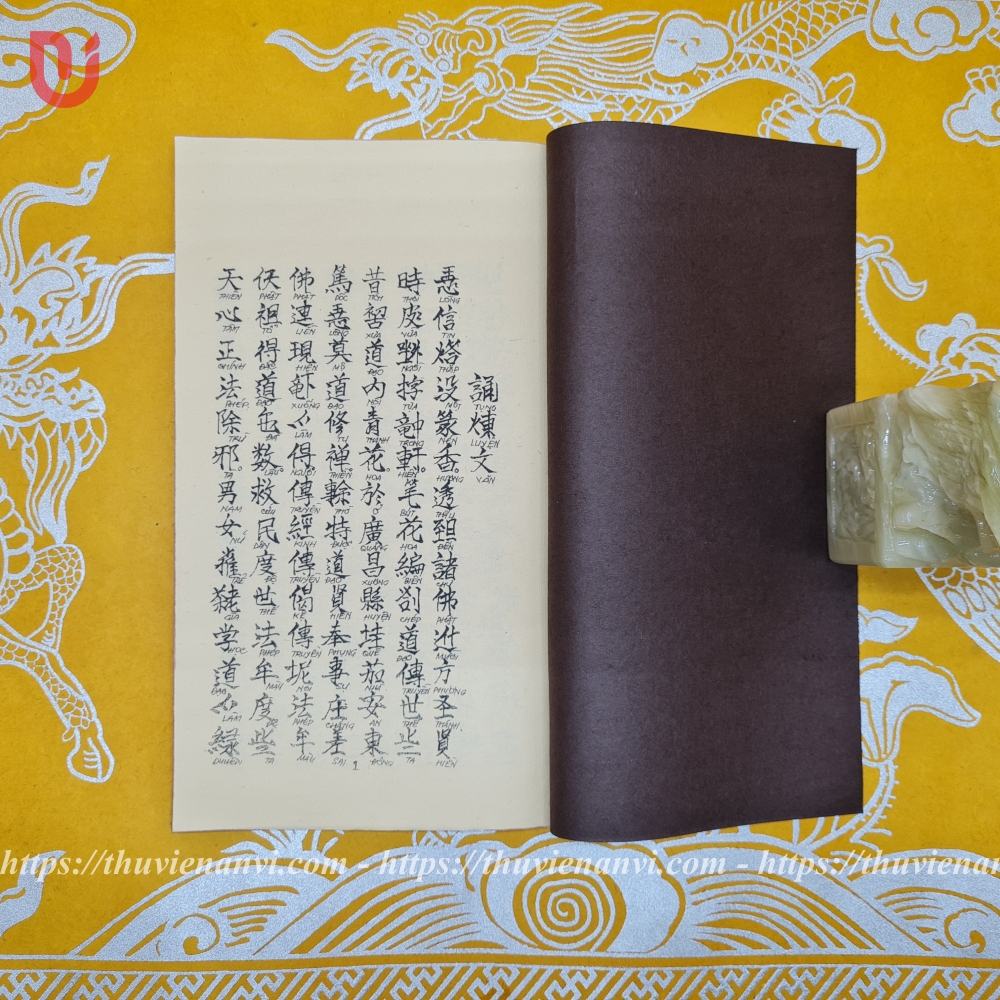 誦煉文
TỤNG LUYỆN VĂN
信没篆香。透𦤾諸佛辻方圣賢
LÒNG TIN THẮP MỘT NÉN HƯƠNG THẤU ĐẾN CHƯ PHẬT MƯỜI PHƯƠNG THÁNH HIỀN
時皮軒。笔花編劄道傳世些
THÌ VỪA NGỒI TỰA TRONG HIÊN BÚT HOA BIÊN CHÉP ĐẠO TRUYỀN THẾ TA
昔道内青花。於廣昌縣圭茹安東
XƯA ĐẠO NỘI THANH HOA Ở QUẢNG XƯƠNG HUYỆN QUÊ NHÀ AN ĐÔNG
篤莫道修禅。特道賢奉事庄差
DỐC LÒNG MỘ ĐẠO TU THIỀN ĐƯỢC ĐẠO HIỀN PHỤNG SỰ CHẲNG SAI
佛連現得。傳經傳偈傳坭法牟
PHẬT LIỀN HIỆN XUỐNG LÀM NGƯỜI TRUYỀN KINH TRUYỀN KỆ TRUYỀN NƠI PHÉP MẦU
祖得道㐌数。救民度世法牟度些
PHẬT TỔ ĐẮC ĐẠO ĐÃ LÂU CỨU DÂN ĐỘ THẾ PHÉP MẦU ĐỘ TA
天心正法除邪。男女学道緣
THIÊN TÂM CHÍNH PHÉP TRỪ TÀ NAM NỮ TRẺ GIÀ HỌC ĐẠO LÀM DUYÊN
1
https://thuvienanvi.com - https://thuvienanvi.com - https://thuvienan